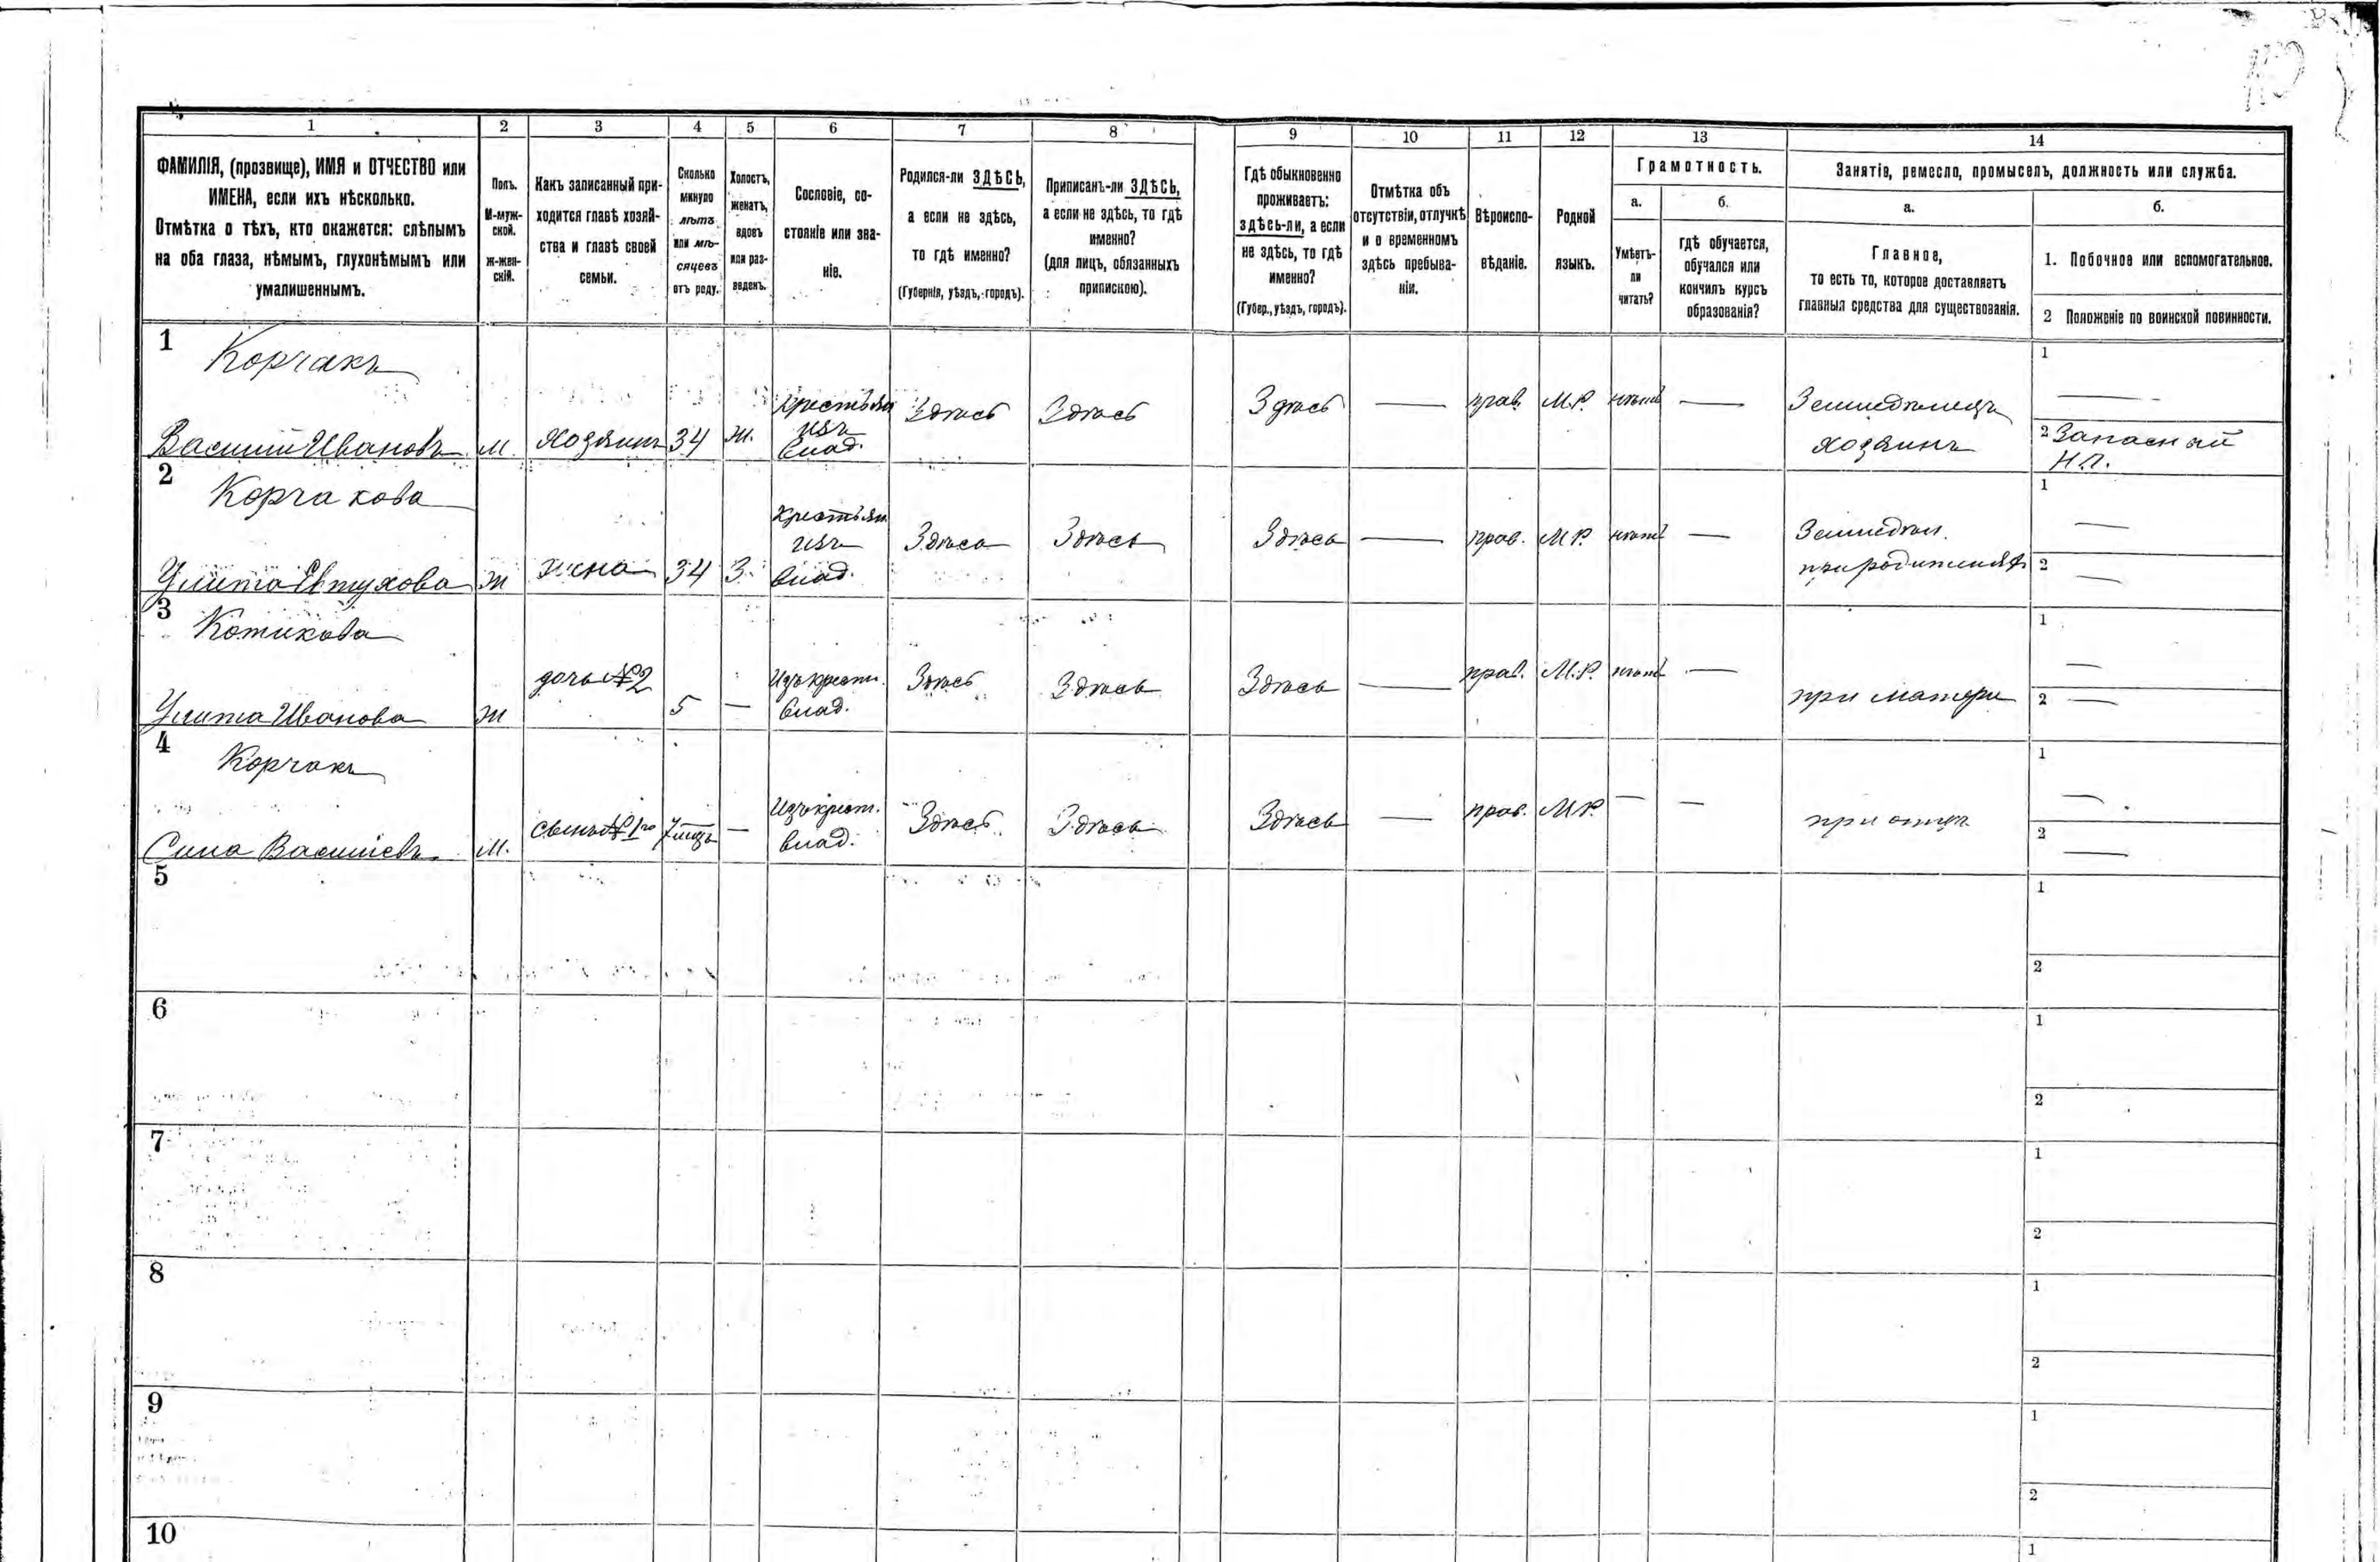 1 2 3 4 5 6 7 8 9 10 11 12 13 14
ФАМИЛІЯ, (прозвище), ИМЯ и ОТЧЕСТВО или
ИМЕНА, если ихъ нѣсколько.
Отмѣтка о тѣхъ, кто окажется: слѣпымъ
на оба глаза, нѣмымъ, глухонѣмымъ или
умалишеннымъ.
Полъ.
М-муж-
ской.
ж-жен-
скій.
Какъ записанный при-
ходится главѣ хозяй-
ства и главѣ своей
семьи.
Сколько
минуло
лѣтъ
или мѣ-
сяцевъ
отъ роду.
Холостъ,
женатъ,
вдовъ
или раз-
веденъ.
Сословіе, со-
стояніе или зва-
ніе.
Родился-ли ЗДѢСЬ,
а если не здѣсь,
то гдѣ именно?
(Губернія, уѣздъ, городъ).
Приписанъ-ли ЗДѢСЬ,
а если не здѣсь, то гдѣ
именно?
(для лицъ, обязанныхъ
припискою).
Гдѣ обыкновенно
проживаетъ:
здѣсь-ли, а если
не здѣсь, то гдѣ
именно?
(Губер., уѣздъ, городъ).
Отмѣтка объ
отсутствіи, отлучкѣ
и о временномъ
здѣсь пребыва-
ніи.
Вѣроиспо-
вѣданіе.
Родной
языкъ.
Грамотность.
а.
Умѣетъ-
ли
читать?
б.
гдѣ обучается,
обучался или
кончилъ курсъ
образованія?
Занятіе, ремесло, промыселъ, должность или служба.
а.
Главное,
то есть то, которое доставляетъ
главныя средства для существованія.
б.
1. Побочное или вспомогательное.
2 Положеніе по воинской повинности.
1 Корчакъ
Василій Ивановъ
м.
хозяинъ
34
ж.
Крестьян
изъ
влад.
Здѣсь
Здѣсь
Здѣсь
—
прав.
М.Р.
нѣтъ
—
Земледѣлецъ
хозяинъ
1 —
2 Запасный
Н.Л.
2 Корчакова
Улита Евтухова
ж
жена
34
З.
Крестьян.
изъ
влад.
Здѣсь
Здѣсь
Здѣсь
—
прав.
М.Р.
нѣтъ
—
Земледѣл.
1 —
2 —
3 Котикова
Улита Иванова
ж
дочь №2
5
—
Изъ крест.
влад.
Здѣсь
Здѣсь
Здѣсь
—
прав.
М.Р.
нѣтъ
—
при матери
1 —
2 —
4 Корчакъ
Сила Васильевъ
м.
сынъ №1го
7 мѣц
—
Изъ крест.
влад.
Здѣсь
Здѣсь
Здѣсь
—
прав.
М.Р.
—
—
при отцѣ
1 —
2 —
5
1
2
6
1
2
7
1
2
8
1
2
9
1
2
10
1